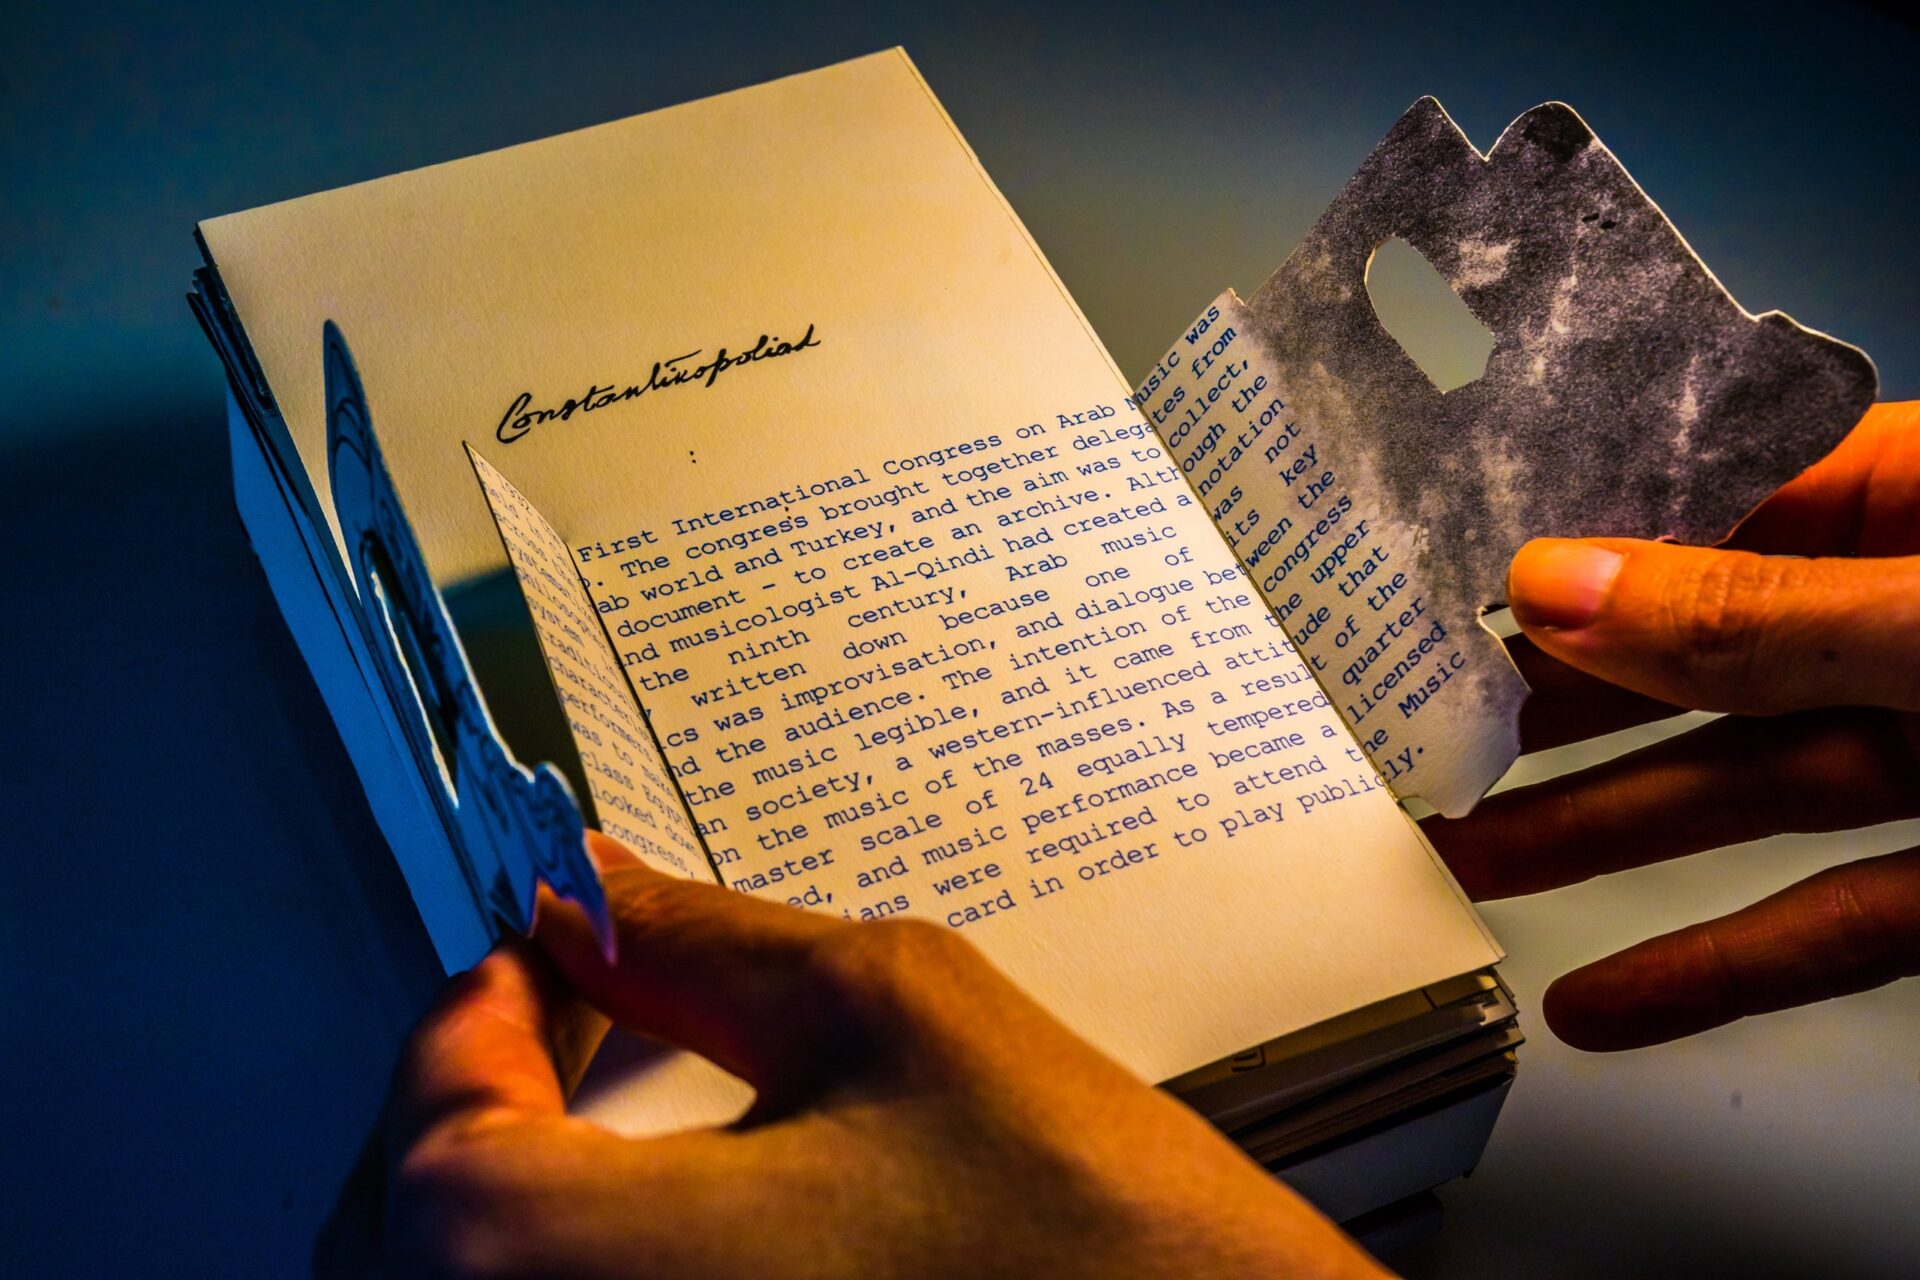 Constantinopoliad
:
First International Congress on Arab Music was
. The congress brought together delegates from
ab world and Turkey, and the aim was to collect,
document – to create an archive. Although the
nd musicologist Al-Qindi had created a notation
the ninth century, Arab music was not
written down because one of its key
cs was improvisation, and dialogue between the
nd the audience. The intention of the congress
the music legible, and it came from the upper
an society, a western-influenced attitude that
on the music of the masses. As a result of the
master scale of 24 equally tempered quarter
ed, and music performance became a licensed
ians were required to attend the Music
card in order to play publicly.
system
traditional
was to make
class Egypt
looked down
congress,